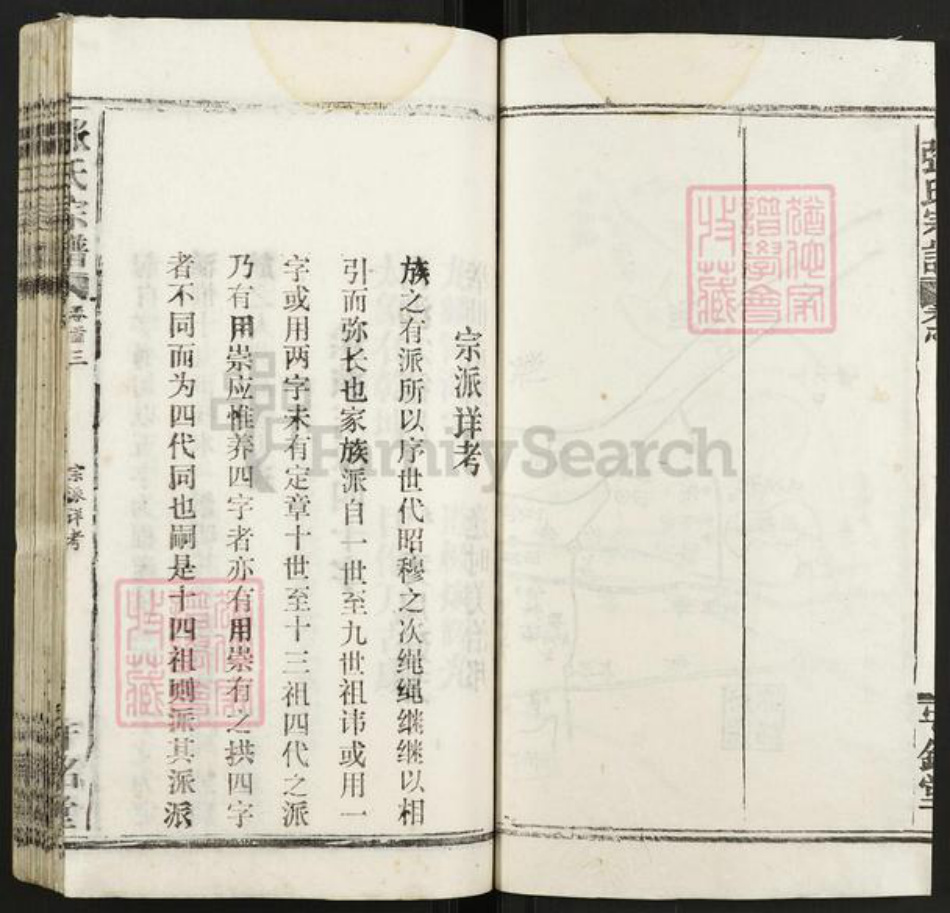 張氏宗譜
宗派详考
族之有派所以序世代昭穆之次绳绳继继以相
引而弥长也家族派自一世至九世祖讳或用一
字或用两字未有定章十世至十三祖四代之派
乃有用崇应惟养四字者亦有用崇有之拱四字
者不同而为四代同也嗣是十四祖则派其派派
张氏宗谱
卷首
三
宗派详考
FamilySearch